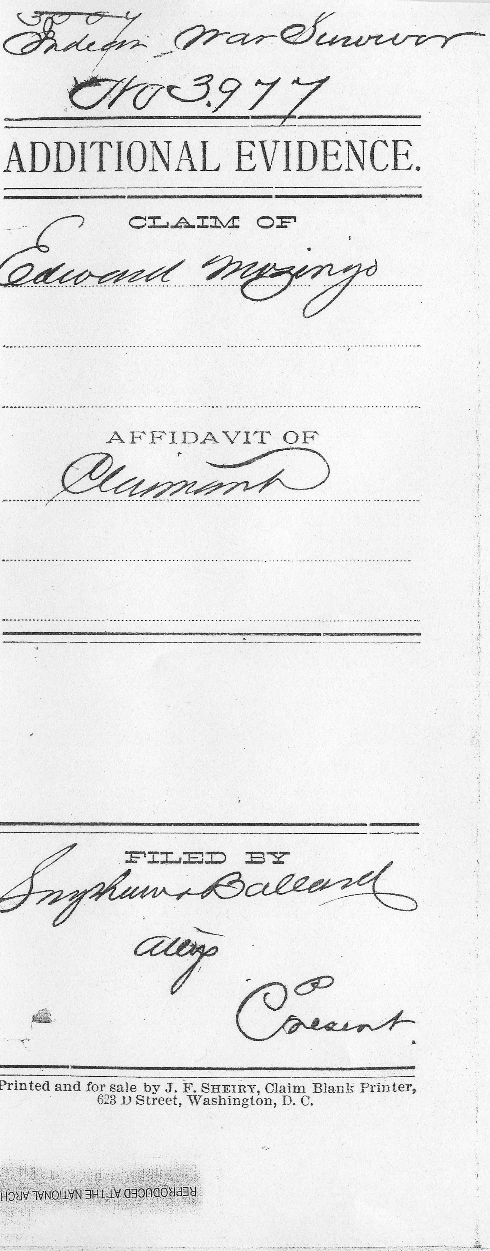 Indian War Survivor
No 3.977
ADDITIONAL EVIDENCE.
CLAIM OF
Edward Mozingo
AFFIDAVIT OF
Claimant
FILED BY
Ballard
Attys
Present.
Printed and for sale by J. F. SHEIRY, Claim Blank Printer,
623 D Street, Washington, D. C.
REPRODUCED AT THE NATIONAL ARCH